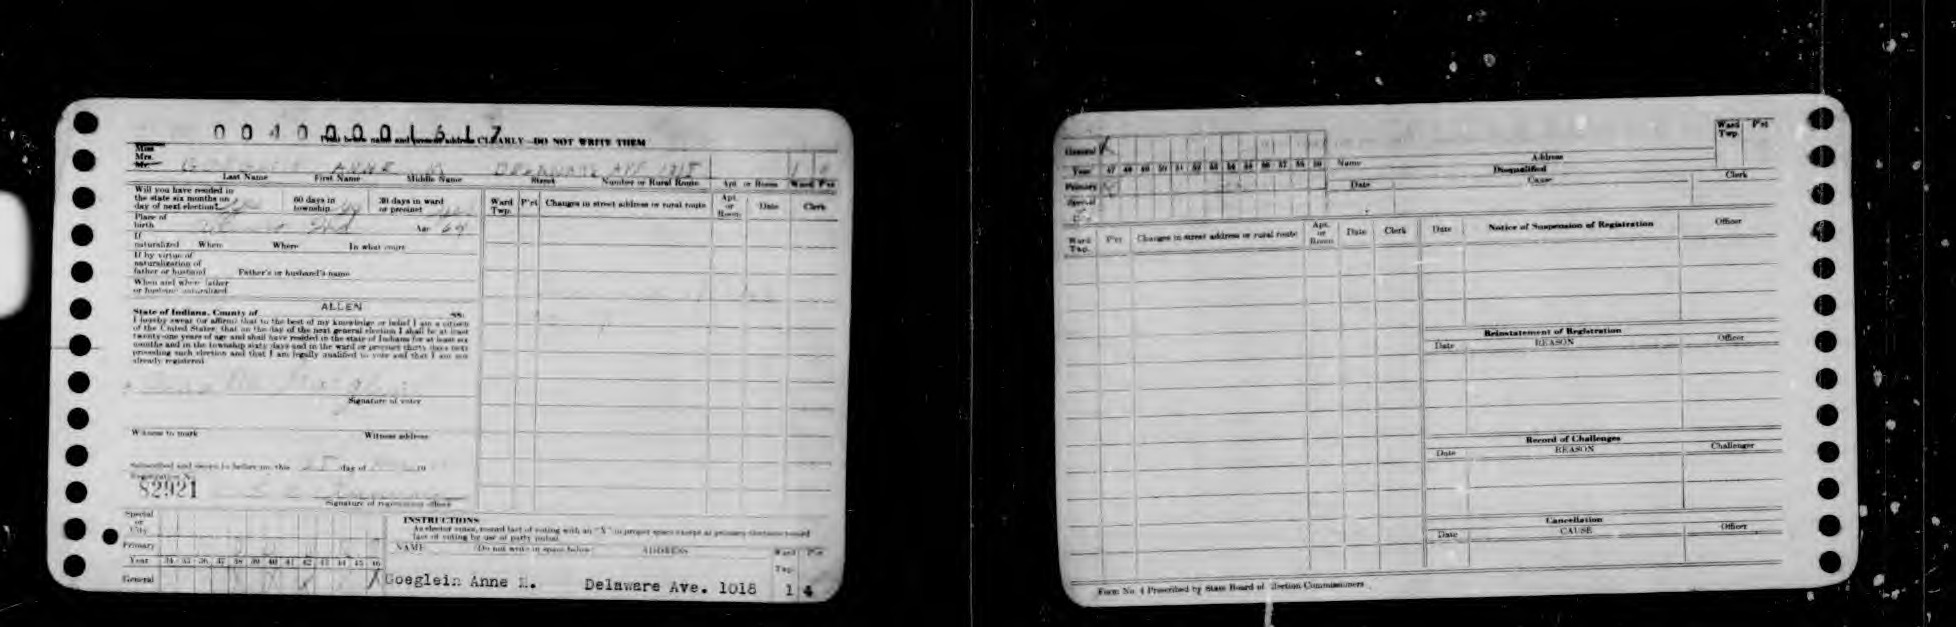 00400001617
CLEARLY—DO NOT WRITE THEM
Miss
Mrs.
Mr.
ANNE M DELAWARE AVE 1018 1
Last Name First Name Middle Name Street Number or Rural Route Apt. or Room Ward P'ct
Will you have resided in
the state six months on
day of next election?
60 days in
township
30 days in ward
or precinct
Place of
birth Ind Age
If
naturalized When Where In what court
If by virtue of
naturalization of
father or husband Father's or husband's name
When and where father
or husband naturalized
ALLEN
State of Indiana, County of SS:
I hereby swear (or affirm) that to the best of my knowledge or belief I am a citizen
of the United States; that on the day of the next general election I shall be at least
twenty-one years of age and shall have resided in the state of Indiana for at least six
months and in the township sixty days and in the ward or precinct thirty days next
preceding such election and that I am legally qualified to vote and that I am not
already registered.
Signature of voter
Witness to mark Witness address
Subscribed and sworn to before me, this day of 19
Registration No.
82921
Signature of registration officer
Ward
Twp. P'ct Changes in street address or rural route Apt.
or
Room Date Clerk
Special
or
City
Primary
Year 34 35 36 37 38 39 40 41 42 43 44 45 46
General
INSTRUCTIONS
As elector votes, record fact of voting with an "X" in proper space except at primary elections record
fact of voting by use of party initial.
NAME (Do not write in space below) ADDRESS Ward
Twp. P'ct
Goeglein Anne M. Delaware Ave. 1018 1 4
General
Year 47 48 49 50 51 52 53 54 55 56 57 58 59
Primary
Special
Name Address Ward
Twp. P'ct
Disqualified
Date Cause Clerk
Ward
Twp. P'ct Changes in street address or rural route Apt.
or
Room Date Clerk
Date Notice of Suspension of Registration Officer
Reinstatement of Registration
Date REASON Officer
Record of Challenges
Date REASON Challenger
Cancellation
Date CAUSE Officer
Form No. 4 Prescribed by State Board of Election Commissioners